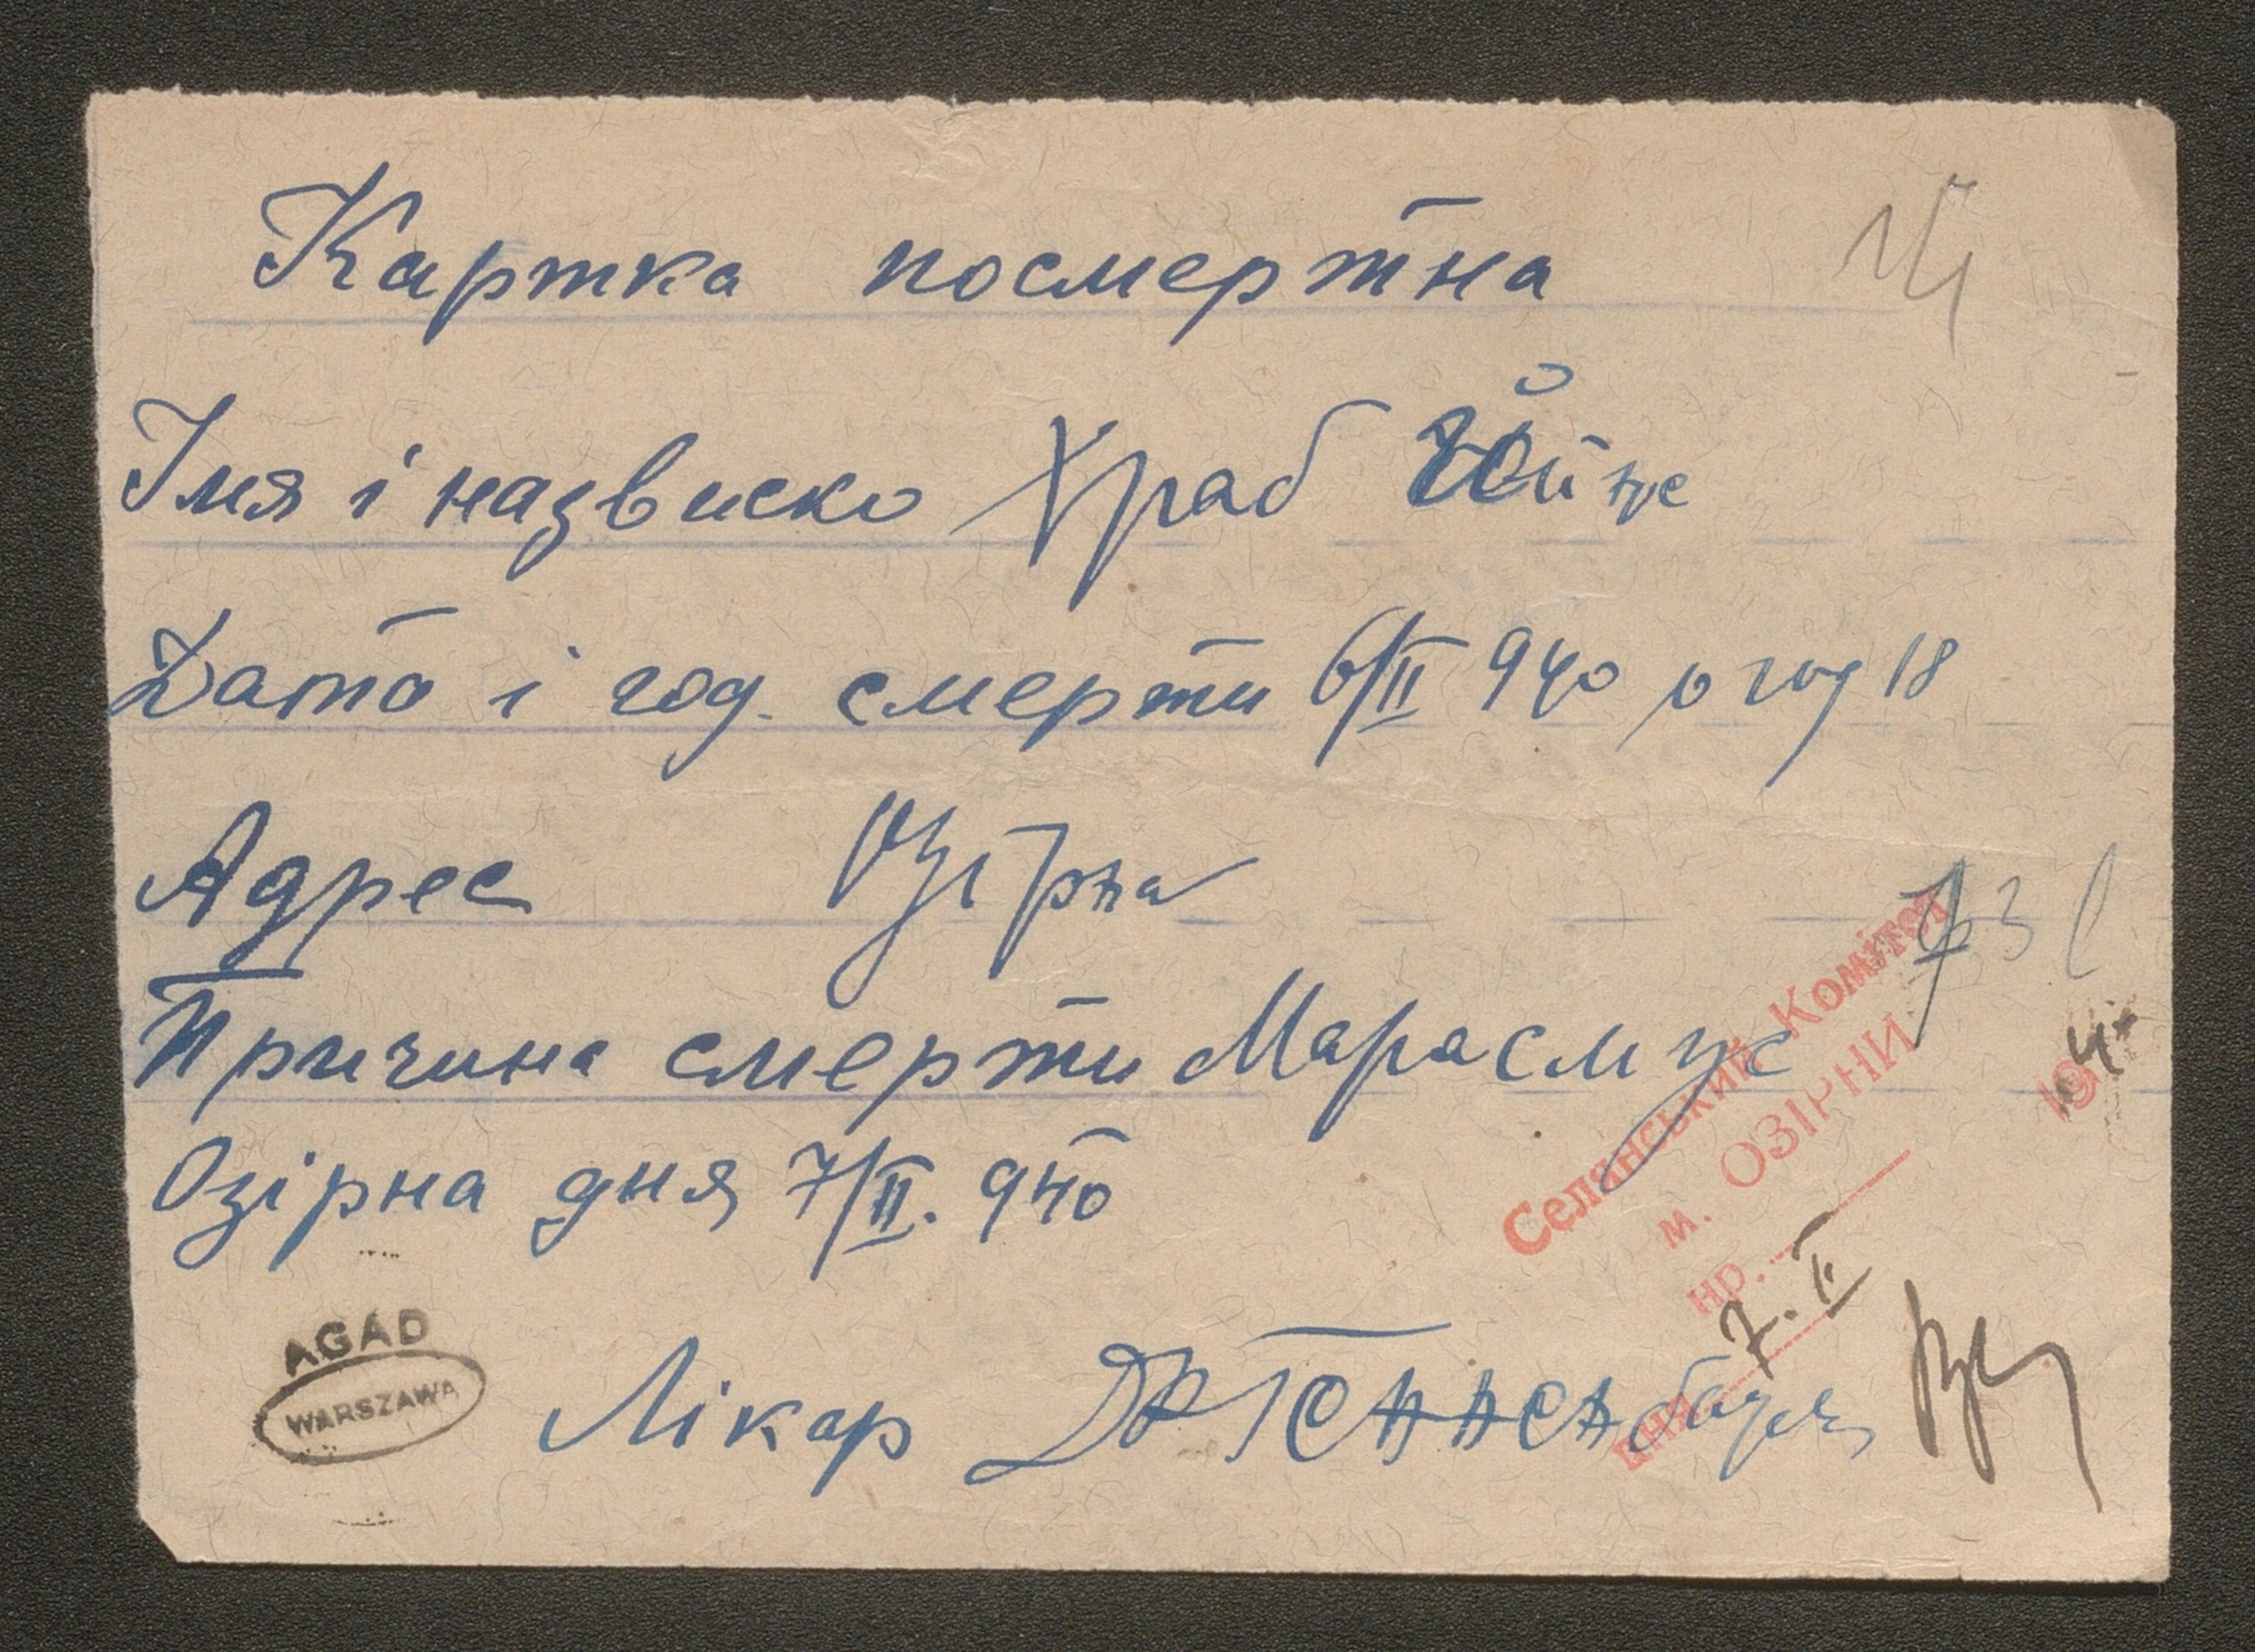 Картка посмертна
Імя і назвиско Храб
Дата і год. смерти 6/II 940 о год 18
Адрес Озірна
73
Причина смерти Марасмус
Озірна дня 7/II. 940
Селянський Комітет
м. ОЗІРНИ
нр.
дня 7. II 194
AGAD
WARSZAWA
Лікар ДР